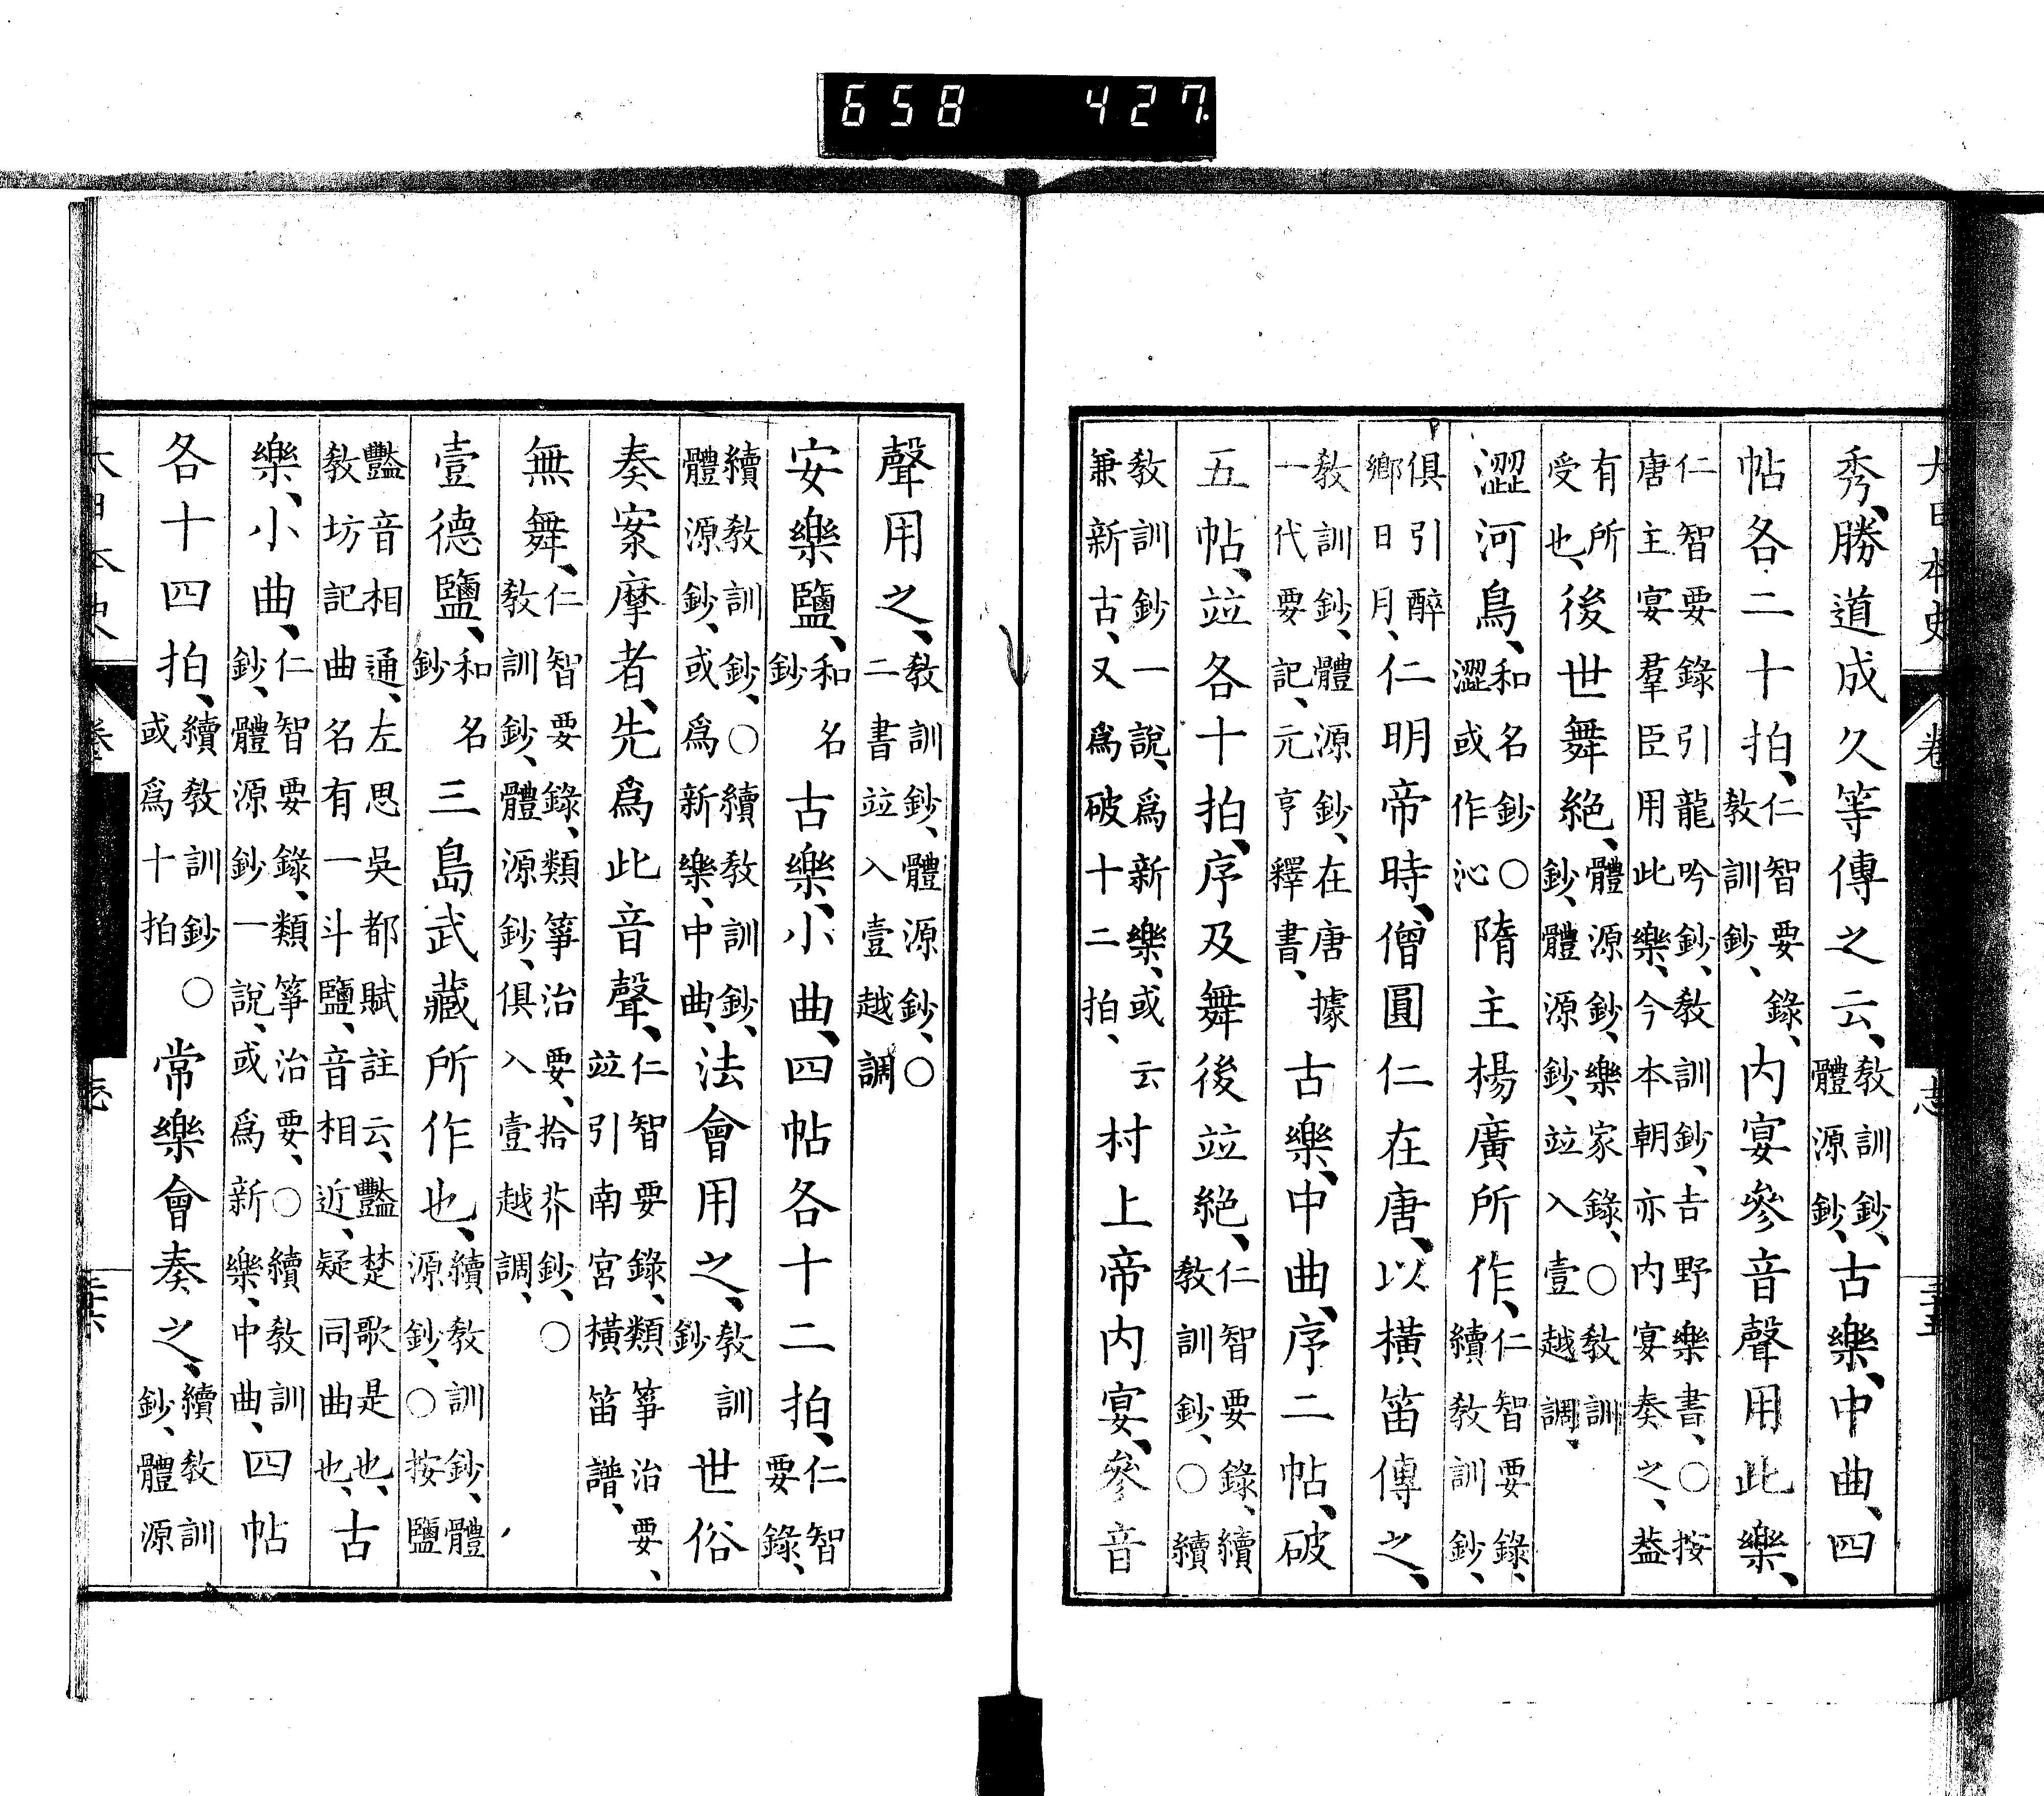 658 427
大日本史 卷 志 三十五
秀、勝道成久等傳之云、教訓鈔、體源鈔、古樂、中曲、四
帖各二十拍、仁智要錄、教訓鈔、内宴參音聲用此樂、
仁智要錄引龍吟鈔、教訓鈔、吉野樂書、○按唐主宴羣臣用此樂、今本朝亦内宴奏之、蓋
有所受也、後世舞絶、體源鈔、樂家錄、○教訓鈔、體源鈔、竝入壹越調、
澀河鳥、和名鈔○澀或作沁隋主楊廣所作、仁智要錄、續教訓鈔、
俱引醉鄉日月、仁明帝時、僧圓仁在唐、以横笛傳之、
教訓鈔、體源鈔、在唐一代要記、元亨釋書、據古樂、中曲、序二帖、破
五帖、竝各十拍、序及舞後竝絶、仁智要錄、教訓鈔、○續
教訓鈔一說、爲新樂、或云兼新古、又爲破十二拍、村上帝内宴、參音
聲用之、教訓鈔、體源鈔、○二書竝入壹越調
安樂鹽、和名鈔古樂、小曲、四帖各十二拍、仁智要錄、
續教訓鈔、○續教訓鈔、體源鈔、或爲新樂、中曲、法會用之、教訓鈔世俗
奏案摩者、先爲此音聲、仁智要錄、類箏治要、竝引南宮橫笛譜、
無舞、仁智要錄、類箏治要、拾芥鈔、○教訓鈔、體源鈔、俱入壹越調、
壹德鹽、和名鈔三島武藏所作也、續教訓鈔、體源鈔、○按鹽
豔音相通、左思吳都賦註云、豔楚歌是也、教坊記曲名有一斗鹽、音相近、疑同曲也、古
樂、小曲、仁智要錄、類箏治要、○續教訓鈔、體源鈔一說、或爲新樂、中曲、四帖
各十四拍、續教訓鈔○或爲十拍常樂會奏之、續教訓鈔、體源
大日本史 卷 志 三十六